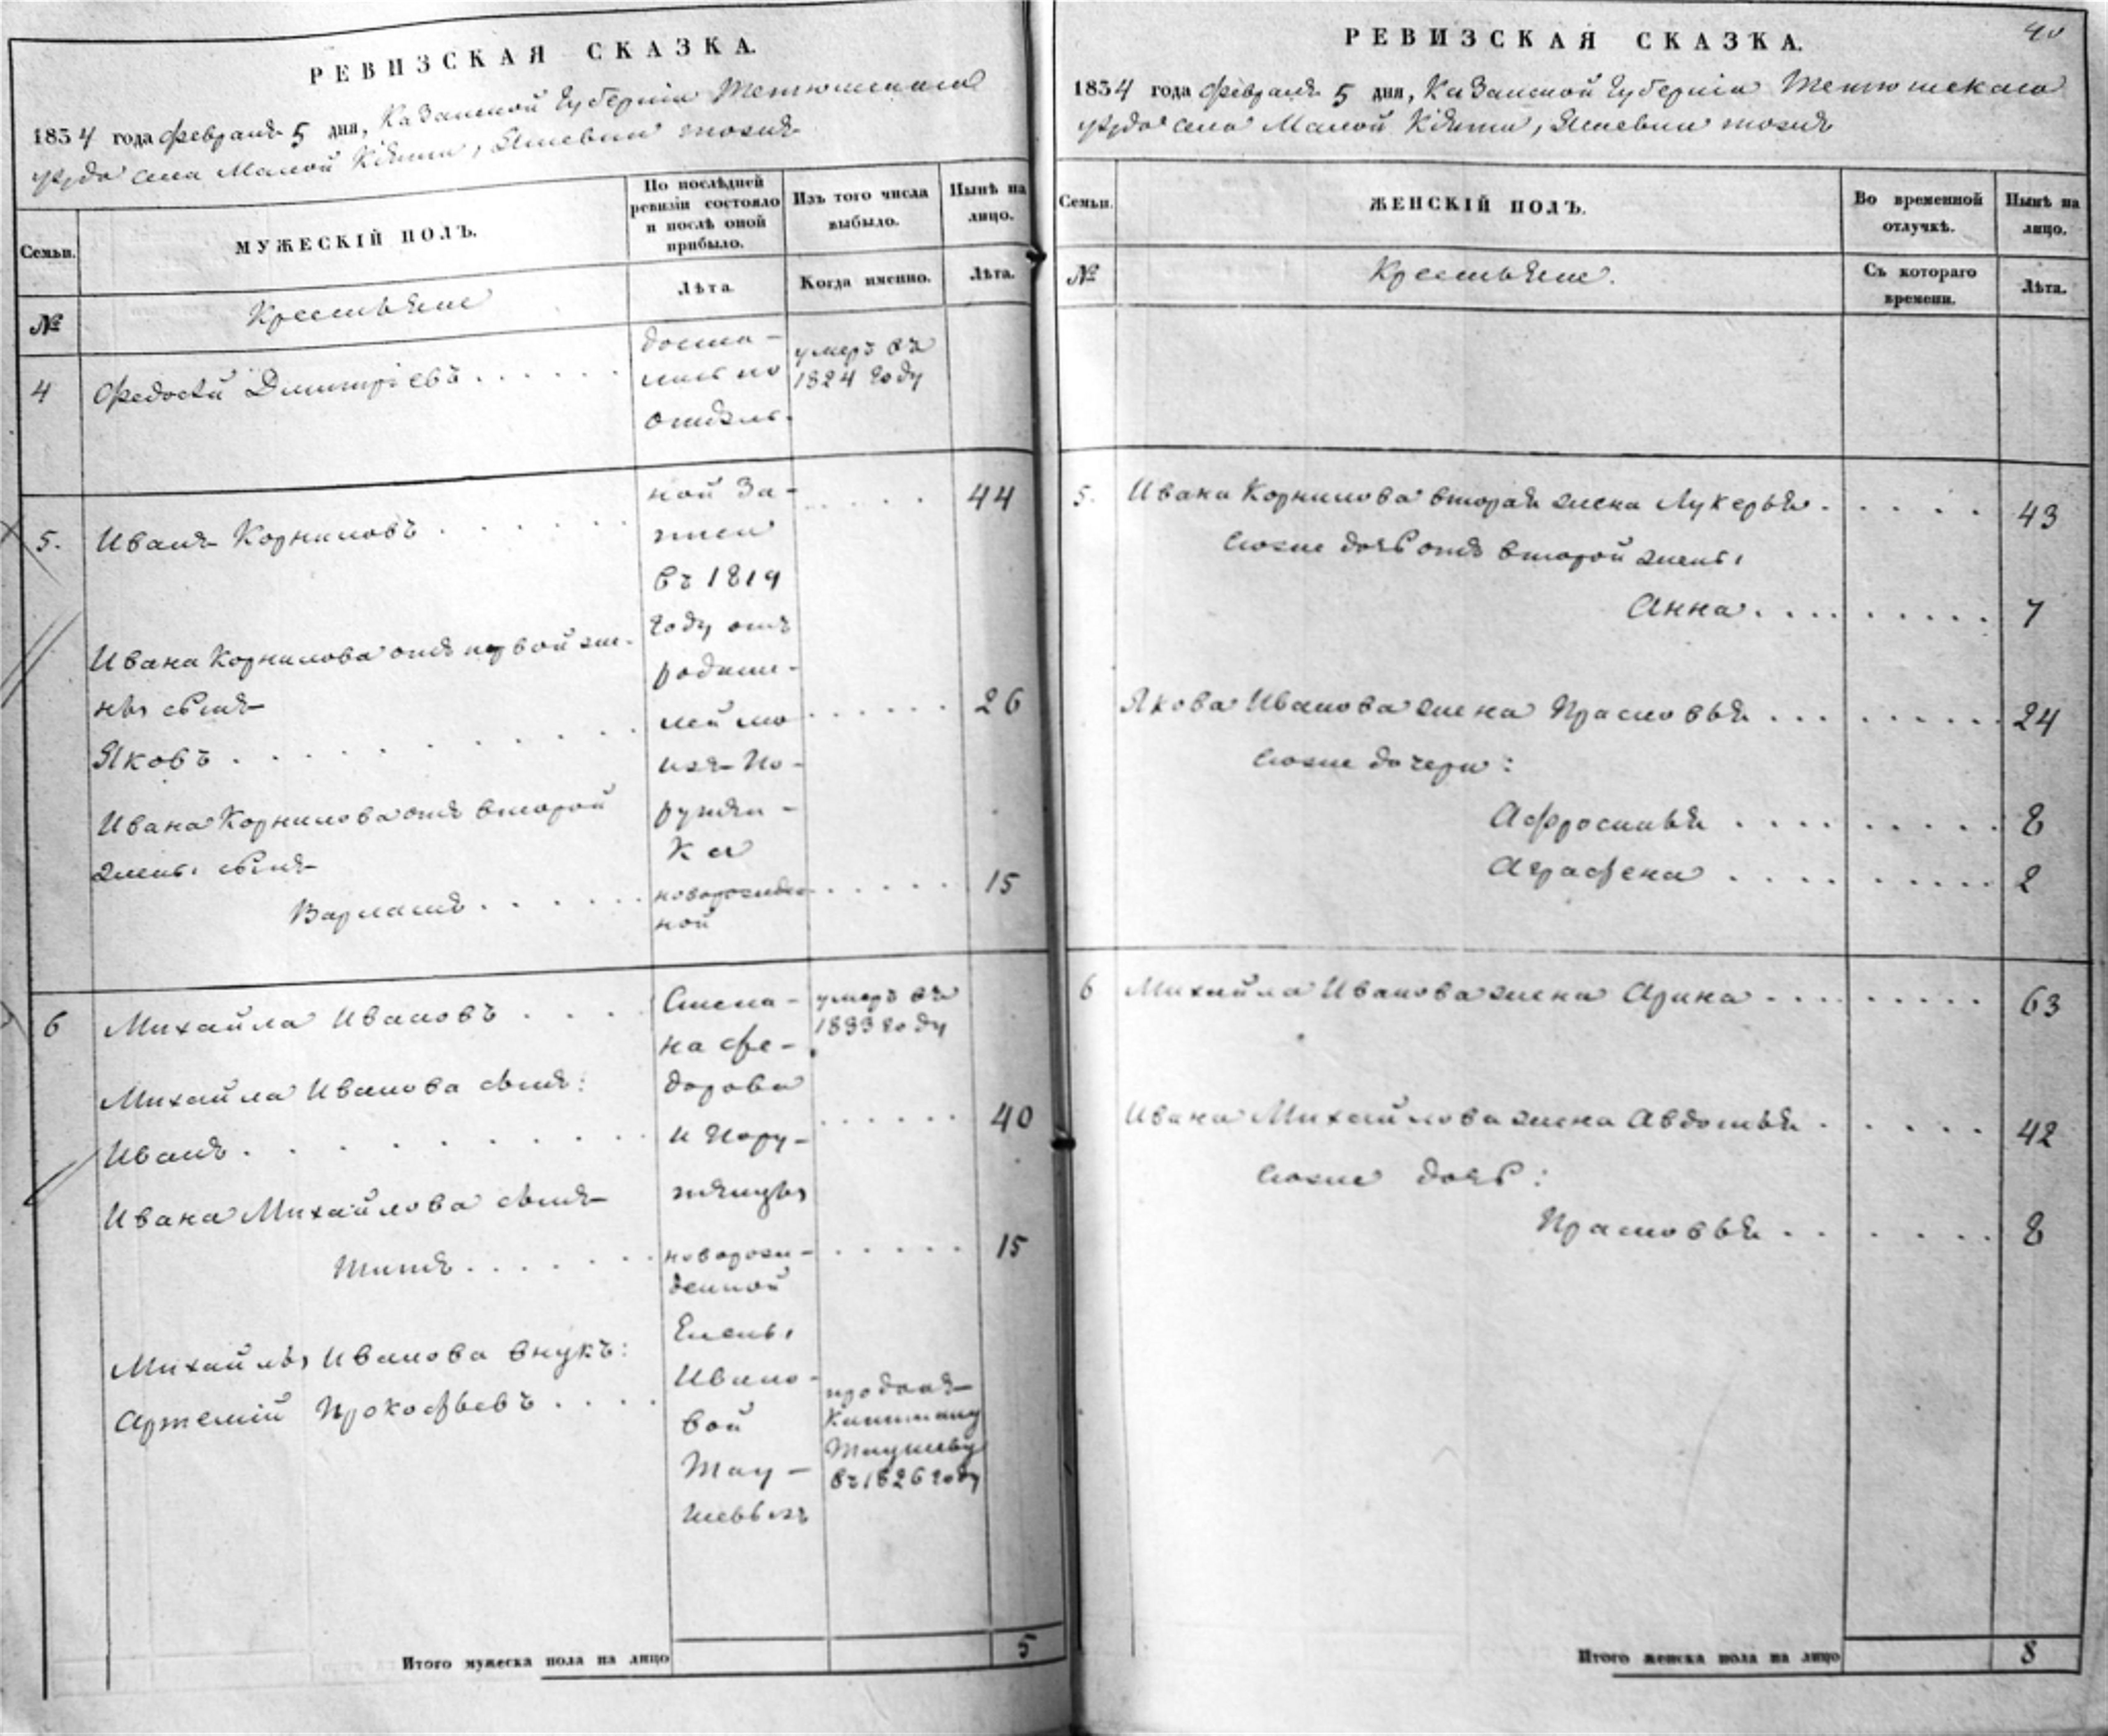 РЕВИЗСКАЯ СКАЗКА.
1834 года февраля 5 дня, Казанской Губернiи Тетюшскаго
уѣзда села Малой
МУЖЕСКІЙ ПОЛЪ.
Семьи.
По послѣдней
ревизіи состояло
и послѣ оной
прибыло.
Изъ того числа
выбыло.
Нынѣ на
лицо.
№
Крестьяне
Лѣта.
Когда именно.
Лѣта.
4
Федосѣй Дмитрiевъ . . . . . .
доста-
лись по
отдѣль-
умеръ въ
1824 году
5.
Иванъ Корниловъ . . . . . .
ной за-
писи
въ 1819
году отъ
родите-
лей
44
Ивана Корнилова отъ первой же-
ны сынъ
Яковъ . . . . . . . . . .
26
Ивана Корнилова отъ второй
жены сынъ
Варламъ . . . . . .
новорожден
ной
15
6
Михайла Ивановъ . . . .
Степа-
на Фе-
дорова
умеръ въ
1833 году
Михайла Иванова сынъ:
Иванъ . . . . . . . . . .
40
Ивана Михайлова сынъ
Титъ . . . . . . .
новорож-
денной
15
Михайлы Иванова внукъ:
Артемiй Прокофьевъ . . . .
Елены
Ивано-
вой
Тау-
шевыхъ
проданъ
Капитану
Таушеву
въ 1826 году
Итого мужеска пола на лицо
5
40
РЕВИЗСКАЯ СКАЗКА.
1834 года февраля 5 дня, Казанской Губернiи Тетюшскаго
уѣзда села Малой
Семьи.
ЖЕНСКІЙ ПОЛЪ.
Во временной
отлучкѣ.
Нынѣ на
лицо.
№
Крестьяне.
Съ котораго
времени.
Лѣта.
5.
Ивана Корнилова вторая жена Лукерья . . . . .
43
дочь отъ второй жены
Анна . . . . . . . . .
7
Якова Иванова жена Прасковья . . . . . . . .
24
дочери:
Афросинья . . . . . . . . .
8
Аграфена . . . . . . . . .
2
6
Михайла Иванова жена Арина . . . . . . . . .
63
Ивана Михайлова жена Авдотья . . . . .
42
дочь:
Прасковья . . . . . . .
8
Итого женска пола на лицо
8